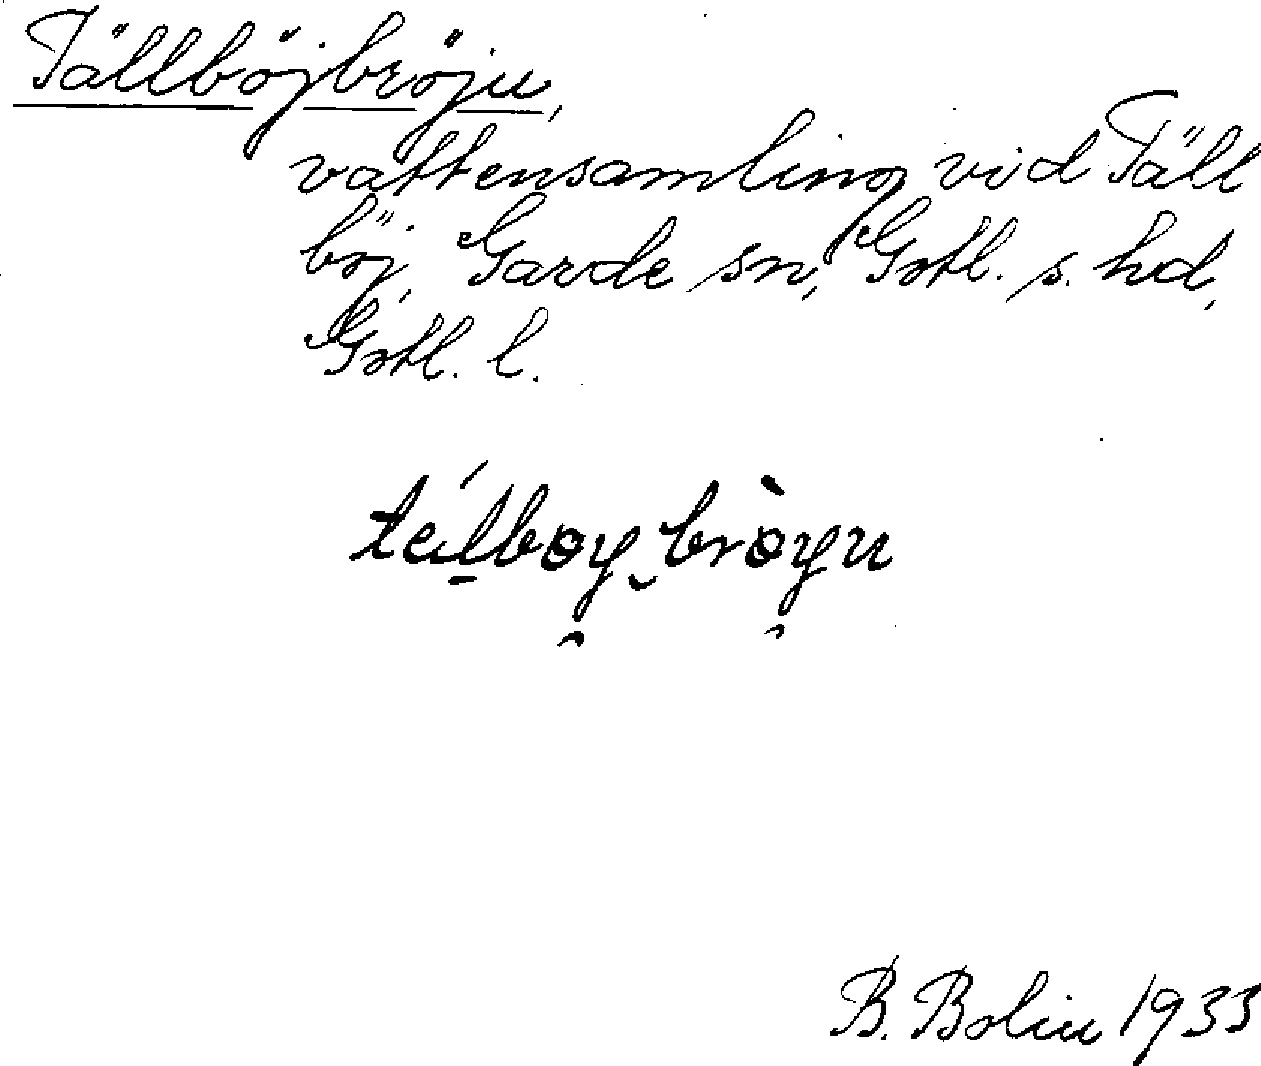 Tällböjbröju,
vattensamling vid Täll
böj, Garde sn, Gotl. s. hd,
Gotl. l.
B. Bolin 1933